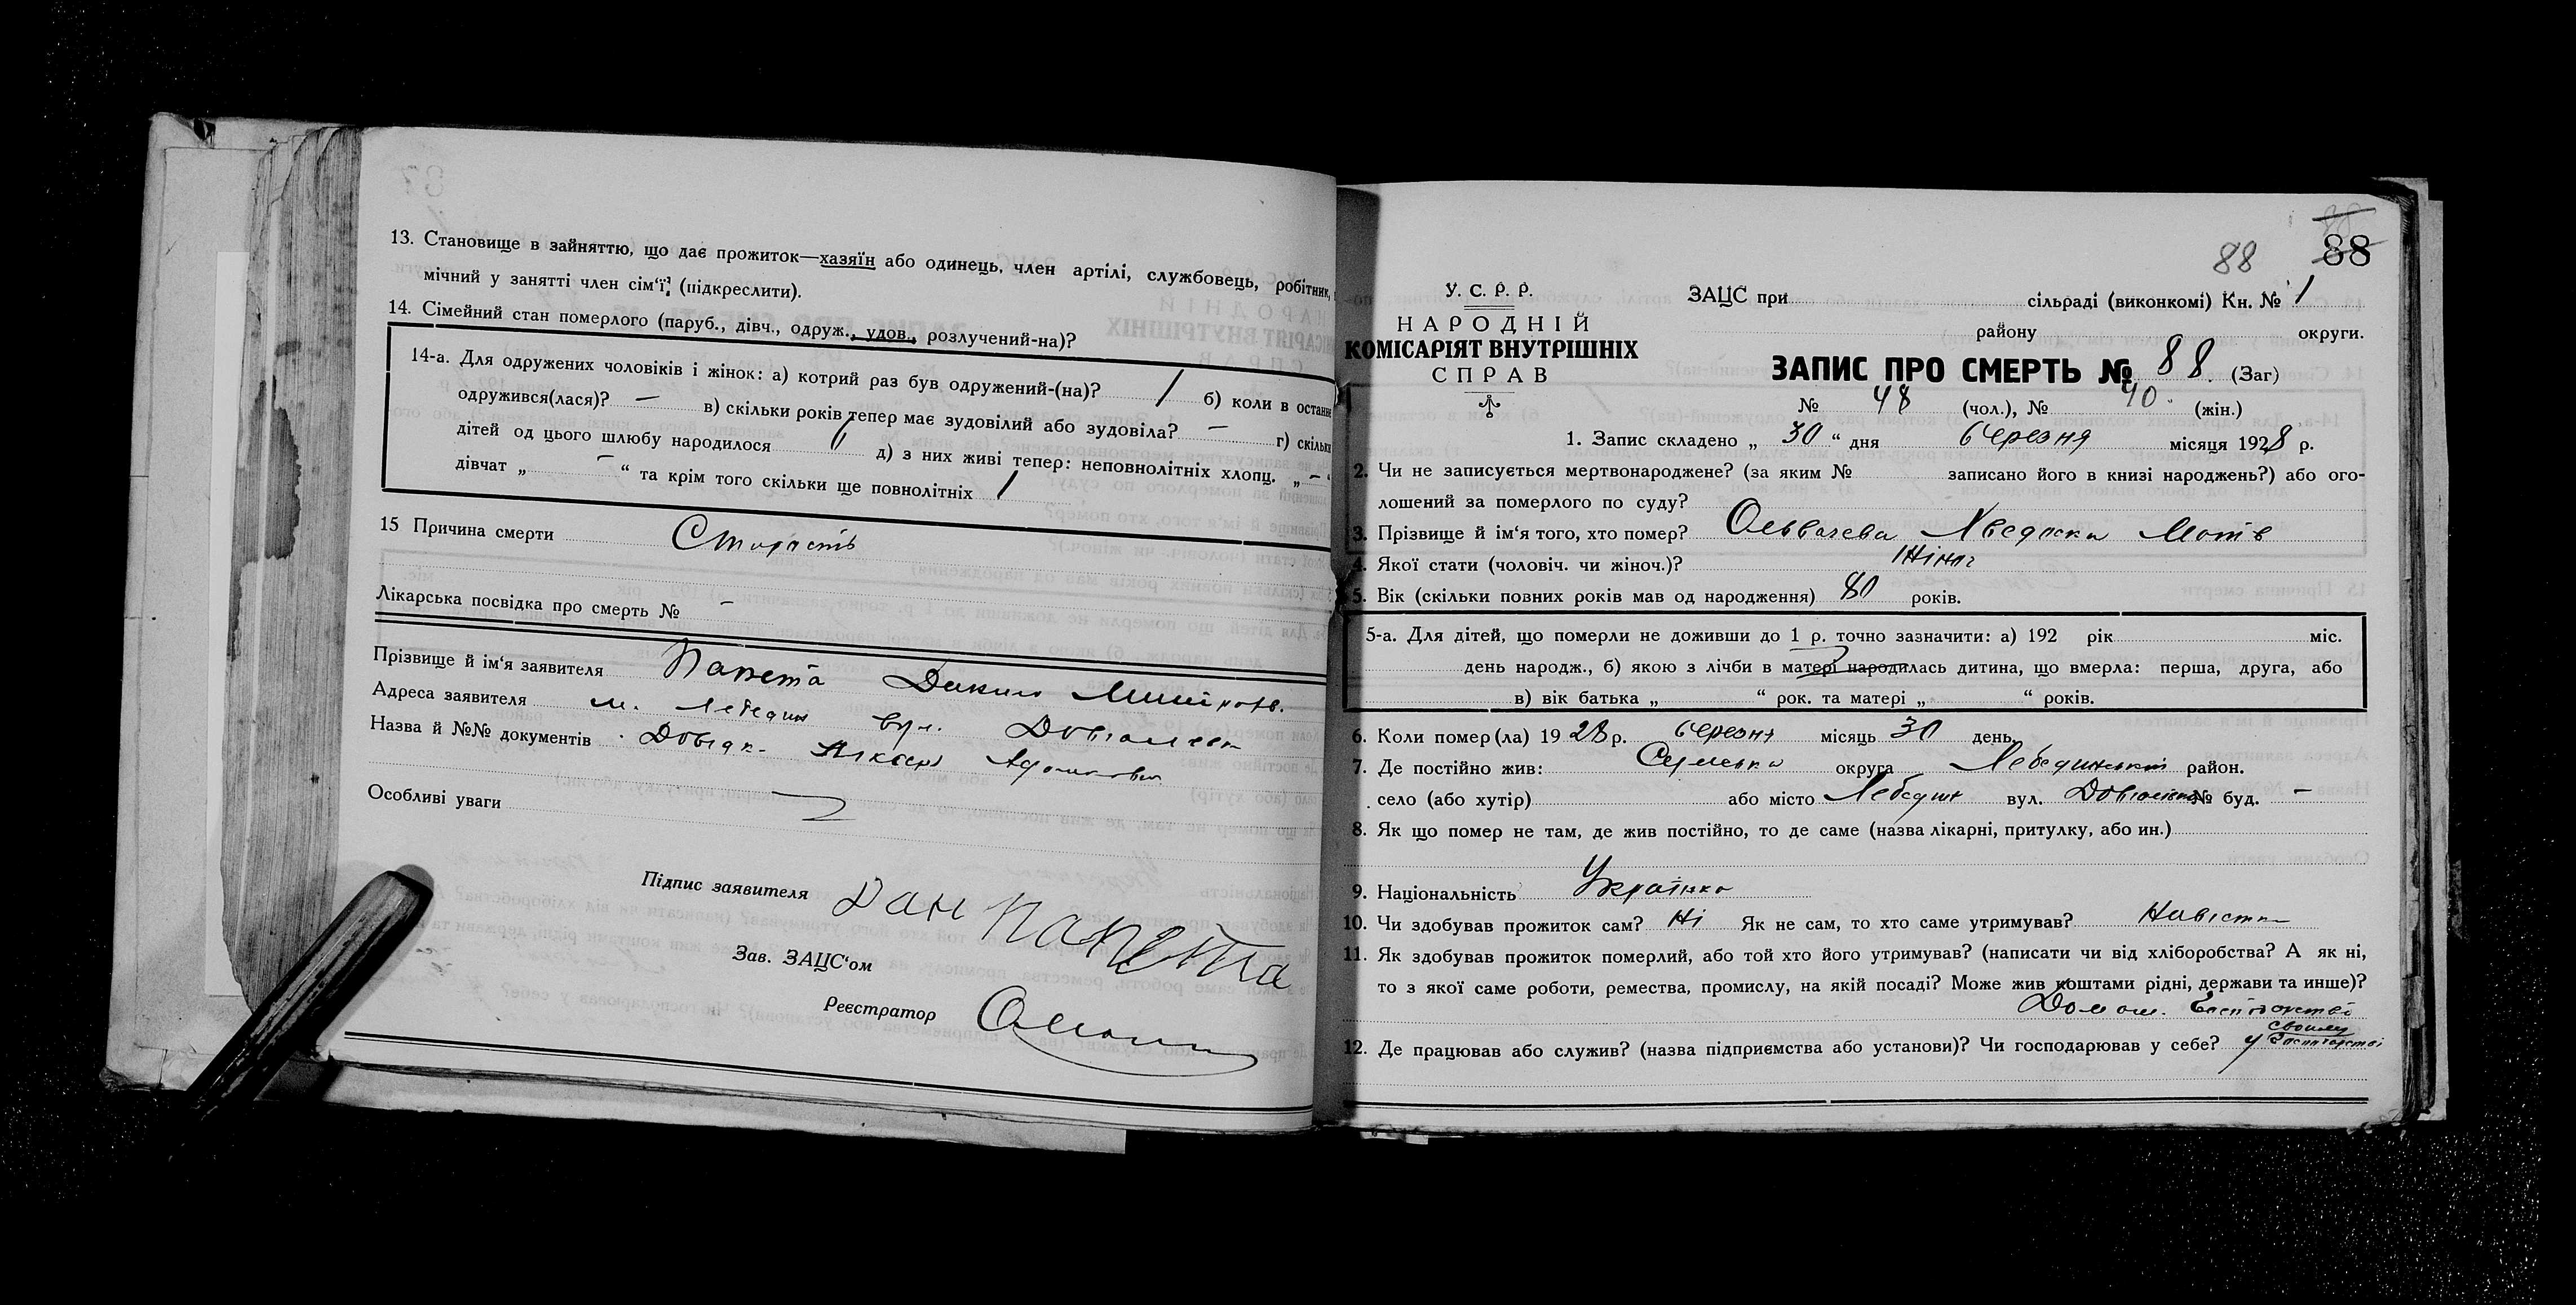 13. Становище в зайняттю, що дає прожиток—хазяїн або одинець, член артілі, службовець, робітник,
мічний у занятті член сім'ї? (підкреслити).
14. Сімейний стан померлого (паруб., дівч., одруж., удов., розлучений-на)?
14-а. Для одружених чоловіків і жінок: а) котрий раз був одружений-(на)? 1 б) коли в останн
одружився(лася)? — в) скільки років тепер має зудовілий або зудовіла? — г) скільки
дітей од цього шлюбу народилося д) з них живі тепер: неповнолітніх хлопц. „ — “
дівчат „ — “ та крім того скільки ще повнолітніх 1
15 Причина смерти Старість
Лікарська посвідка про смерть № —
Прізвище й ім'я заявителя Папета Данило
Адреса заявителя м. Лебедин вул.
Назва й №№ документів Довідк.
Особливі уваги
Підпис заявителя Дан Папета
Зав. ЗАЦС'ом
Реєстратор
88
88
88
У. С. Р. Р.
НАРОДНІЙ
КОМІСАРІЯТ ВНУТРІШНІХ
СПРАВ
ЗАЦС при сільраді (виконкомі) Кн. № 1
району округи.
ЗАПИС ПРО СМЕРТЬ № 88. (Заг)
№ 48 (чол.), № 40 (жін.)
1. Запис складено „ 30 “ дня березня місяця 1928 р.
2. Чи не записується мертвонароджене? (за яким № записано його в книзі народжень?) або ого-
лошений за померлого по суду?
3. Прізвище й ім'я того, хто помер? Мотів
4. Якої стати (чоловіч. чи жіноч.)? Жіноч
5. Вік (скільки повних років мав од народження) 80 років.
5-а. Для дітей, що померли не доживши до 1 р. точно зазначити: а) 192 рік міс.
день народж., б) якою з лічби в матері народилась дитина, що вмерла: перша, друга, або
в) вік батька „ “ рок. та матері „ “ років.
6. Коли помер(ла) 1928 р. березня місяць 30 день.
7. Де постійно жив: Сумська округа Лебединський район.
село (або хутір) або місто Лебедин вул. № буд. —
8. Як що помер не там, де жив постійно, то де саме (назва лікарні, притулку, або ин.)
9. Національність Українка
10. Чи здобував прожиток сам? Ні Як не сам, то хто саме утримував? Невістка
11. Як здобував прожиток померлий, або той хто його утримував? (написати чи від хліборобства? А як ні,
то з якої саме роботи, ремества, промислу, на якій посаді? Може жив коштами рідні, держави та инше)?
Домаш. Господарстві
12. Де працював або служив? (назва підприємства або установи)? Чи господарював у себе? у своїму Господарстві